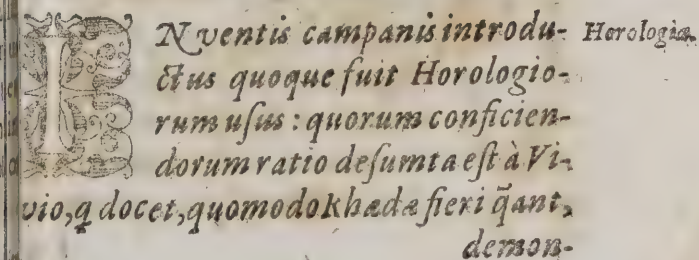 INventis campanis introdu-
ctus quoque fuit Horologio-
rum usus: quorum conficien-
dorum ratio desumta est à Vi-
vio, q̃ docet, quomodo khædæ fieri q̃ant,
demon-
Horologia.